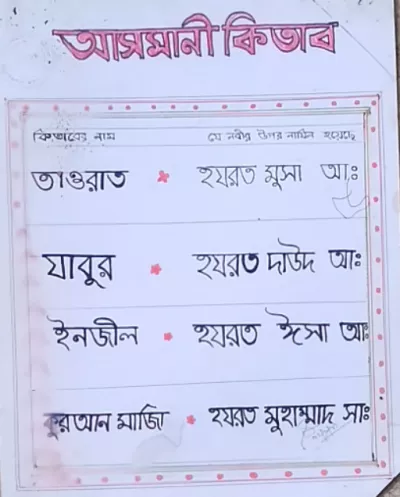 আসমানী কিতাব
কিতাবের নাম যে নবীর উপর নাযিল হয়েছে
তাওরাত * হযরত মুসা আঃ
যাবুর * হযরত দাউদ আঃ
ইনজীল * হযরত ঈসা আঃ
কুরআন মাজি * হযরত মুহাম্মাদ সাঃ